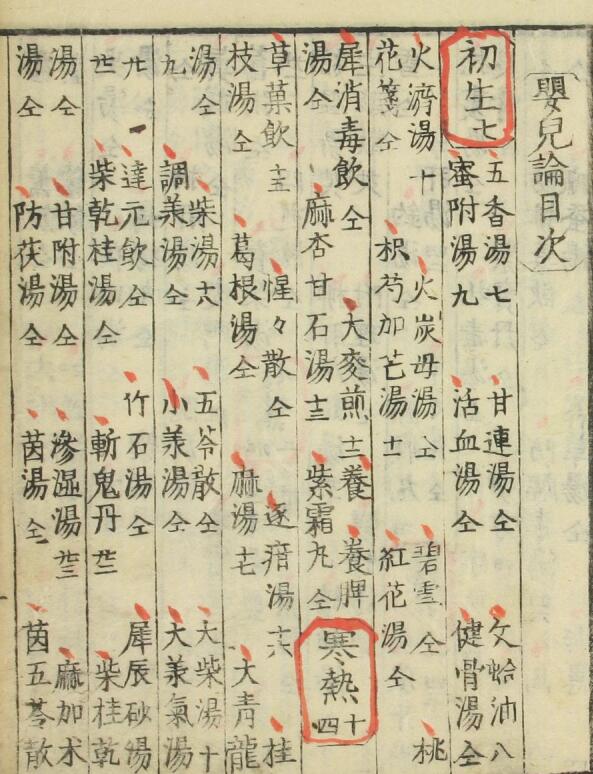 嬰兒論目次
初生七
五香湯七 甘連湯仝 文蛤油八
蜜附湯九 活血湯仝 健骨湯仝
火濟湯十 火炭母湯仝 碧雪仝 桃
花仝 枳芍加芒湯十一 紅花湯仝
犀消毒飲仝 大麥煎十二養 養脾
湯仝 麻杏甘石湯十三 紫霜丸仝
寒熱十四
草菓飲十五 惺々散仝 逐湯十六 桂
枝湯仝 葛根湯仝 麻湯十七 大青龍
湯仝 柴湯十八 五苓散仝 大柴湯十
九 調羕湯仝 小羕湯仝 大羕氣湯
廿 達元飲仝 竹石湯仝 犀辰砂湯
廿一 柴乾桂湯仝 斬鬼丹廿二 柴桂乾
湯仝 甘附湯仝 滲濕湯廿三 麻加术
湯仝 防茯湯仝 茵湯仝 茵五苓散